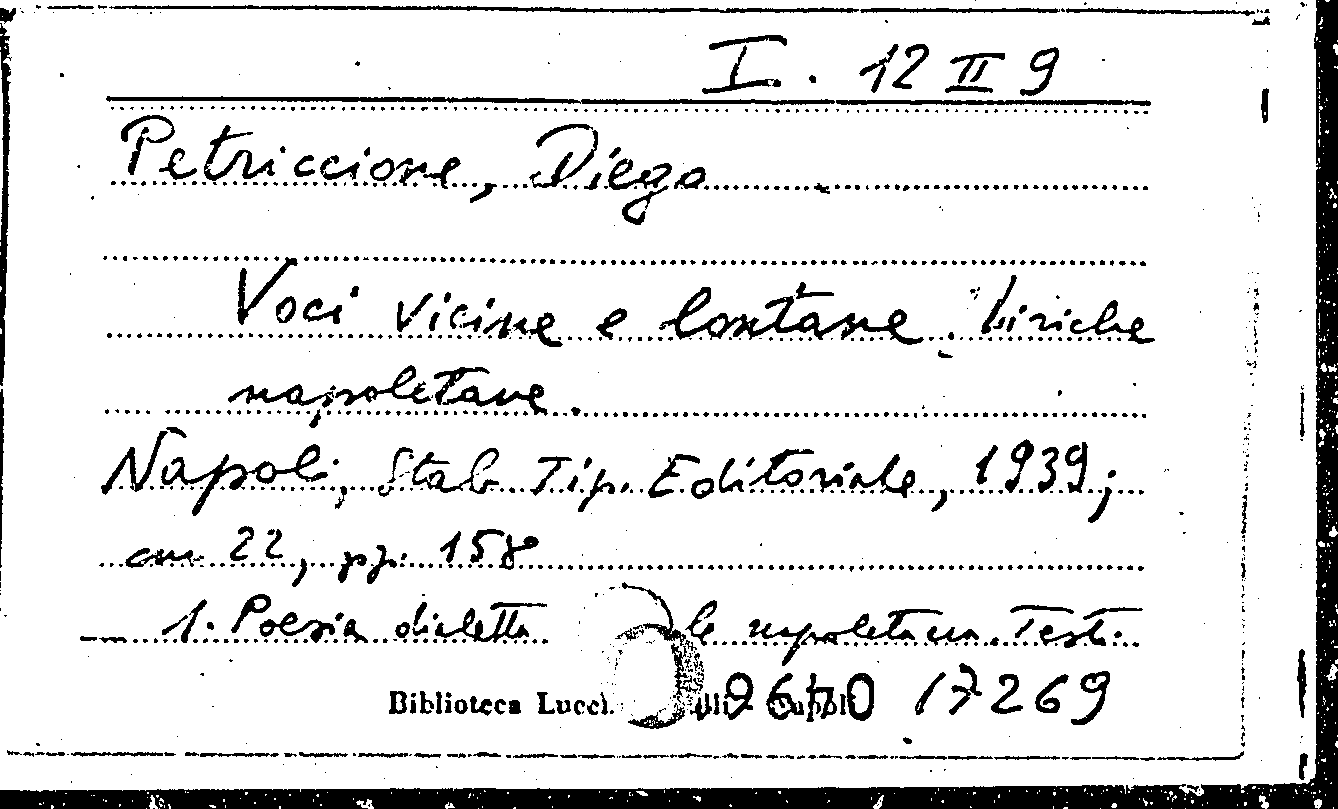 I. 12 II 9
Petriccione, Diego
Voci vicine e lontane. Liriche
napoletane.
Napoli, Stab. Tip. Editoriale, 1939;
cm 22, pp. 158
1. Poesia dialetta le napoletana. Test.
Biblioteca Lucch. 09640 17269